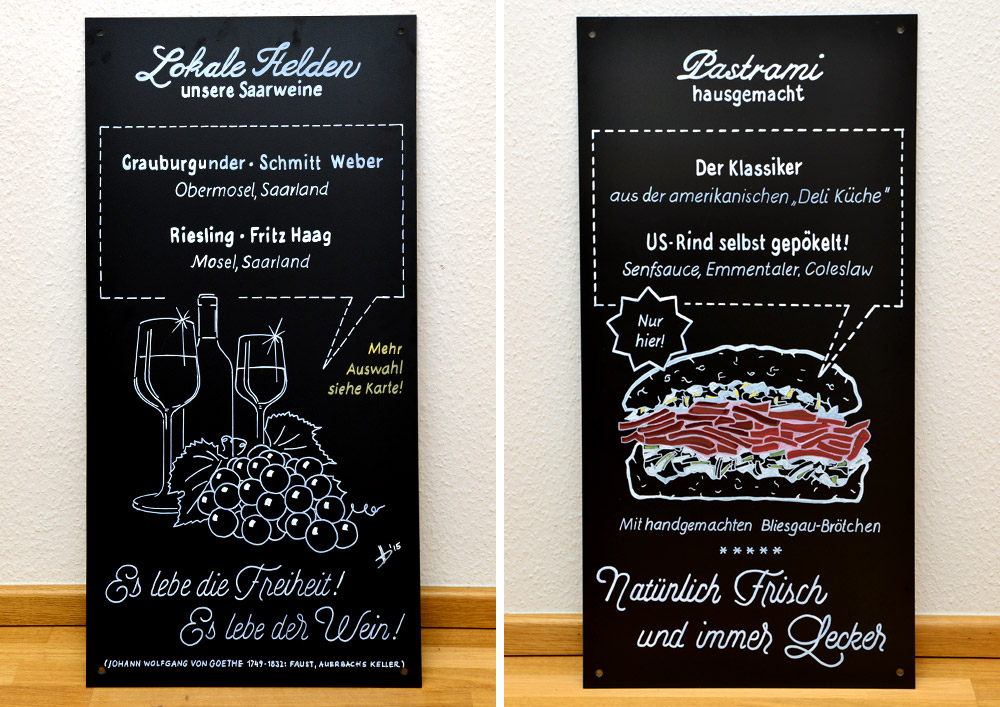 Lokale Helden
unsere Saarweine
Grauburgunder • Schmitt Weber
Obermosel, Saarland
Riesling • Fritz Haag
Mosel, Saarland
Mehr
Auswahl
siehe Karte!
'15
Es lebe die Freiheit!
Es lebe der Wein!
(JOHANN WOLFGANG VON GOETHE 1749-1832: FAUST, AUERBACHS KELLER)
Pastrami
hausgemacht
Der Klassiker
aus der amerikanischen „Deli Küche"
US-Rind selbst gepökelt!
Senfsauce, Emmentaler, Coleslaw
Nur
hier!
Mit handgemachten Bliesgau-Brötchen
*****
Natünlich Frisch
und immer Lecker